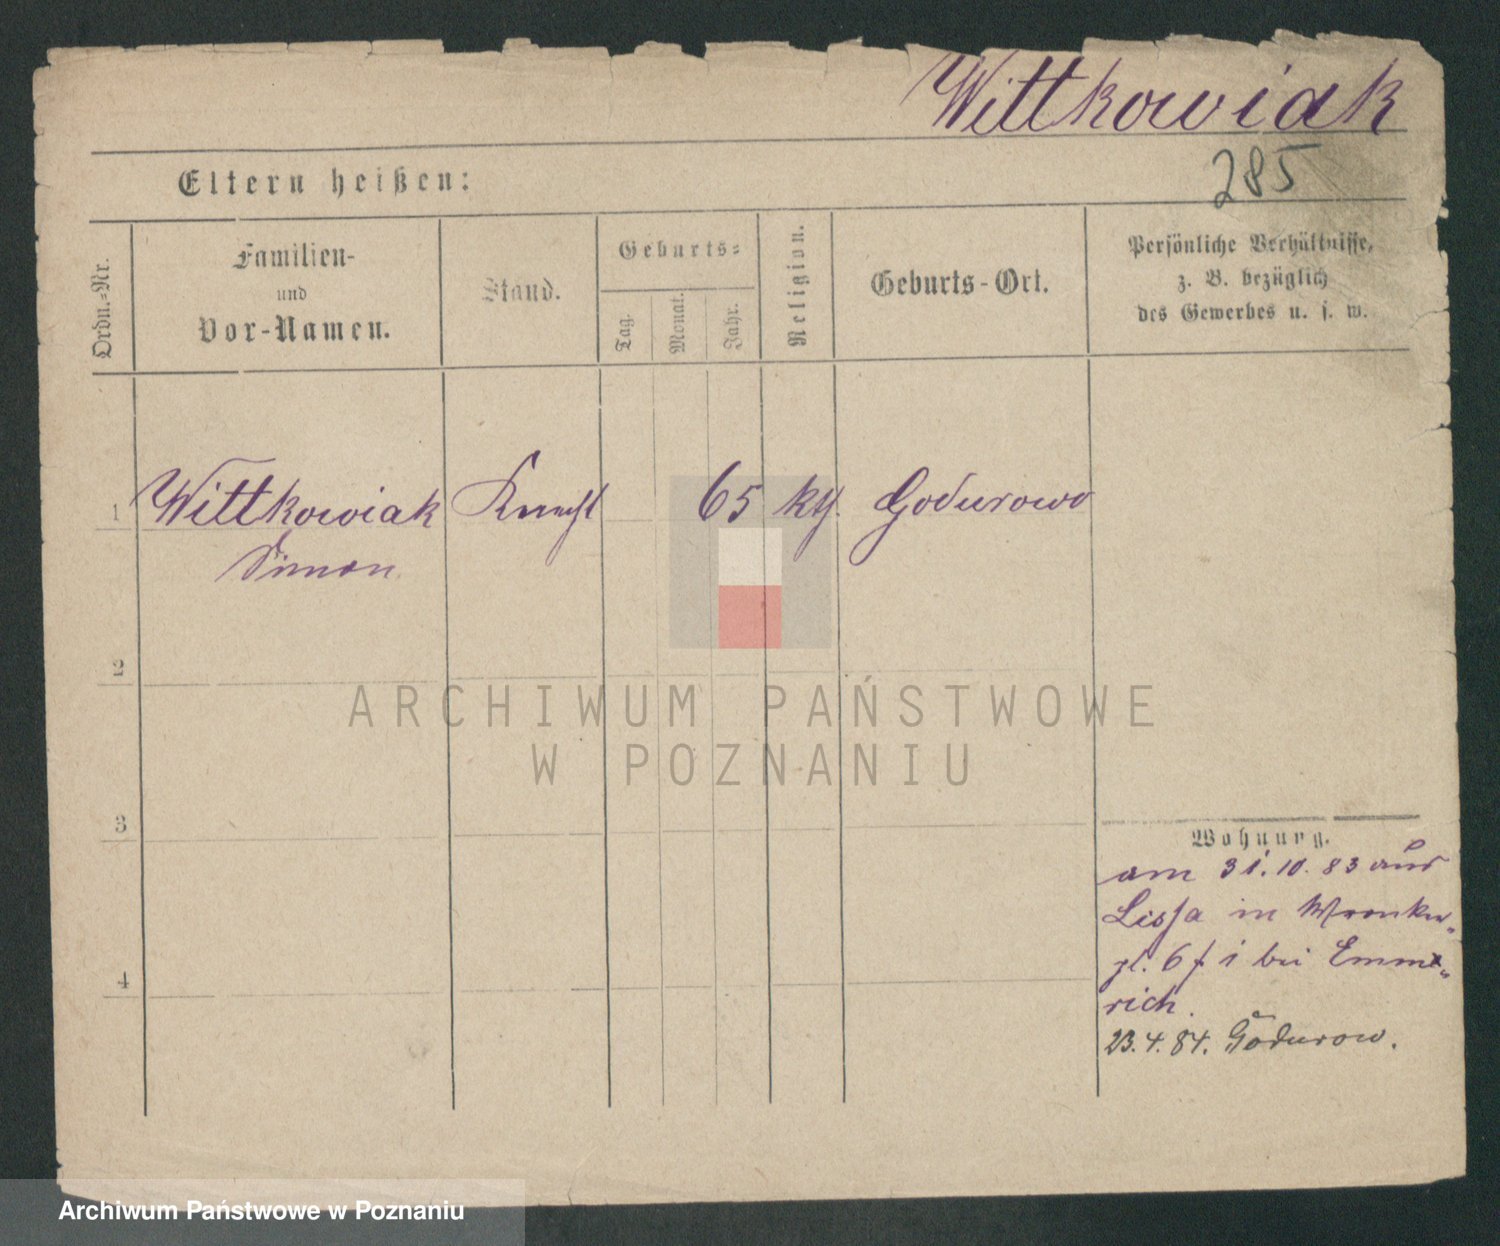 Wittkowiak
285
Eltern heißen:
Ordn.-Nr.
Familien-
und
Vor-Namen.
Stand.
Geburts-
Tag.
Monat.
Jahr.
Religion.
Geburts-Ort.
Persönliche Verhältnisse,
z. B. bezüglich
des Gewerbes u. s. w.
1 Wittkowiak Knecht 65 kth. Godurowo
Simon
2
3
4
Wohnung.
am 31.10.83 aus
Lissa in Wronker
pl. 6 f 1 bei Emme-
rich.
23.4.84. Godurow.
ARCHIWUM PAŃSTWOWE
W POZNANIU
Archiwum Państwowe w Poznaniu